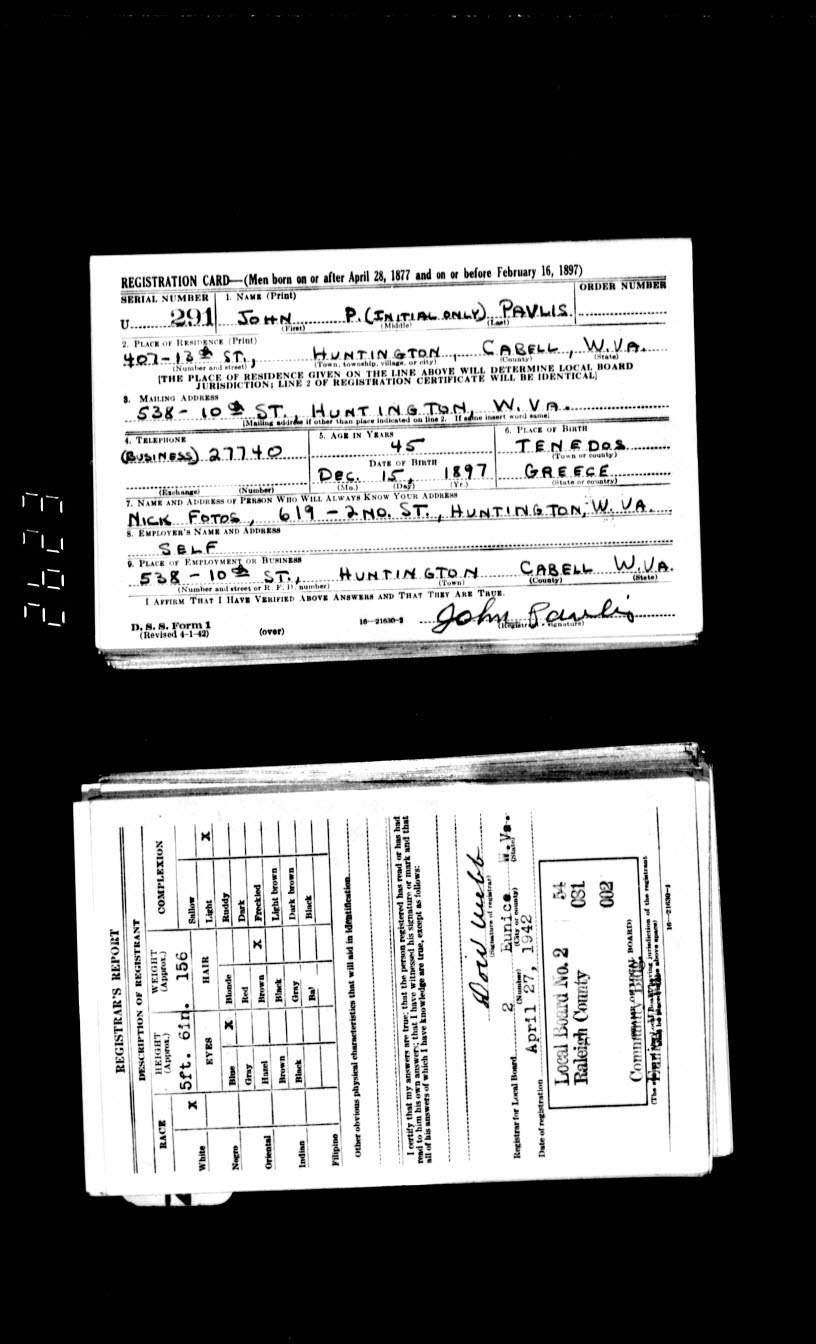 REGISTRATION CARD—(Men born on or after April 28, 1877 and on or before February 16, 1897)
SERIAL NUMBER 1. NAME (Print) ORDER NUMBER
U 291 JOHN P. (INITIAL ONLY) PAVLIS
(First) (Middle) (Last)
2. PLACE OF RESIDENCE (Print)
407-13th ST., HUNTINGTON, CABELL, W.VA.
(Number and street) (Town, township, village, or city) (County) (State)
[THE PLACE OF RESIDENCE GIVEN ON THE LINE ABOVE WILL DETERMINE LOCAL BOARD
JURISDICTION; LINE 2 OF REGISTRATION CERTIFICATE WILL BE IDENTICAL]
3. MAILING ADDRESS
538-10th ST., HUNTINGTON, W. VA.
[Mailing address if other than place indicated on line 2. If same insert word same]
4. TELEPHONE 5. AGE IN YEARS 6. PLACE OF BIRTH
(BUSINESS) 27740 45 TENEDOS
(Town or county)
DATE OF BIRTH
DEC. 15, 1897 GREECE
(Exchange) (Number) (Mo.) (Day) (Yr.) (State or country)
7. NAME AND ADDRESS OF PERSON WHO WILL ALWAYS KNOW YOUR ADDRESS
NICK FOTOS, 619-2ND. ST., HUNTINGTON, W. VA.
8. EMPLOYER'S NAME AND ADDRESS
SELF
9. PLACE OF EMPLOYMENT OR BUSINESS
538-10th ST., HUNTINGTON CABELL W.VA.
(Number and street or R. F. D. number) (Town) (County) (State)
I AFFIRM THAT I HAVE VERIFIED ABOVE ANSWERS AND THAT THEY ARE TRUE.
John Pavlis
D. S. S. Form 1 (Registrant's signature)
(Revised 4-1-42) (over) 16—21630-2
2623
REGISTRAR'S REPORT
DESCRIPTION OF REGISTRANT
RACE HEIGHT (Approx.) WEIGHT (Approx.) COMPLEXION
X 5ft. 6in. 156 Sallow
White EYES HAIR Light X
Blue X Blonde Ruddy
Negro Gray Red Dark
Oriental Hazel Brown X Freckled
Brown Black Light brown
Indian Black Gray Dark brown
Bald Black
Filipino
Other obvious physical characteristics that will aid in identification
I certify that my answers are true; that the person registered has read or has had
read to him his own answers; that I have witnessed his signature or mark and that
all of his answers of which I have knowledge are true, except as follows:
Webb
(Signature of registrar)
Registrar for Local Board 2 Eunice W.Va.
(Number) (City or county) (State)
Date of registration April 27, 1942
Local Board No. 2 54
Raleigh County 081
002
Community Bldg.
16—21630-1